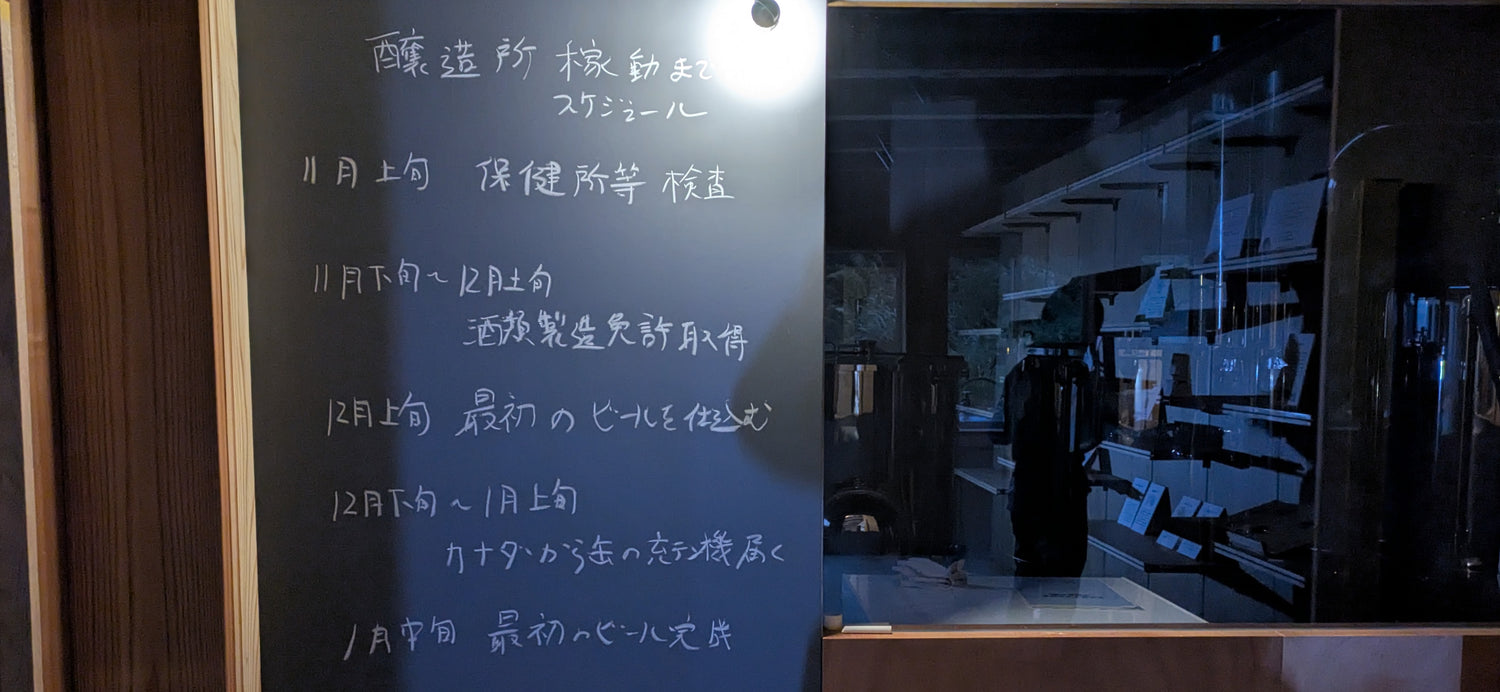 醸造所 稼動まで
スケジュール
11月上旬 保健所等 検査
11月下旬〜12月上旬
酒類製造免許取得
12月上旬 最初のビールを仕込む
12月下旬〜1月上旬
カナダから缶の充テン機届く
1月中旬 最初のビール完成